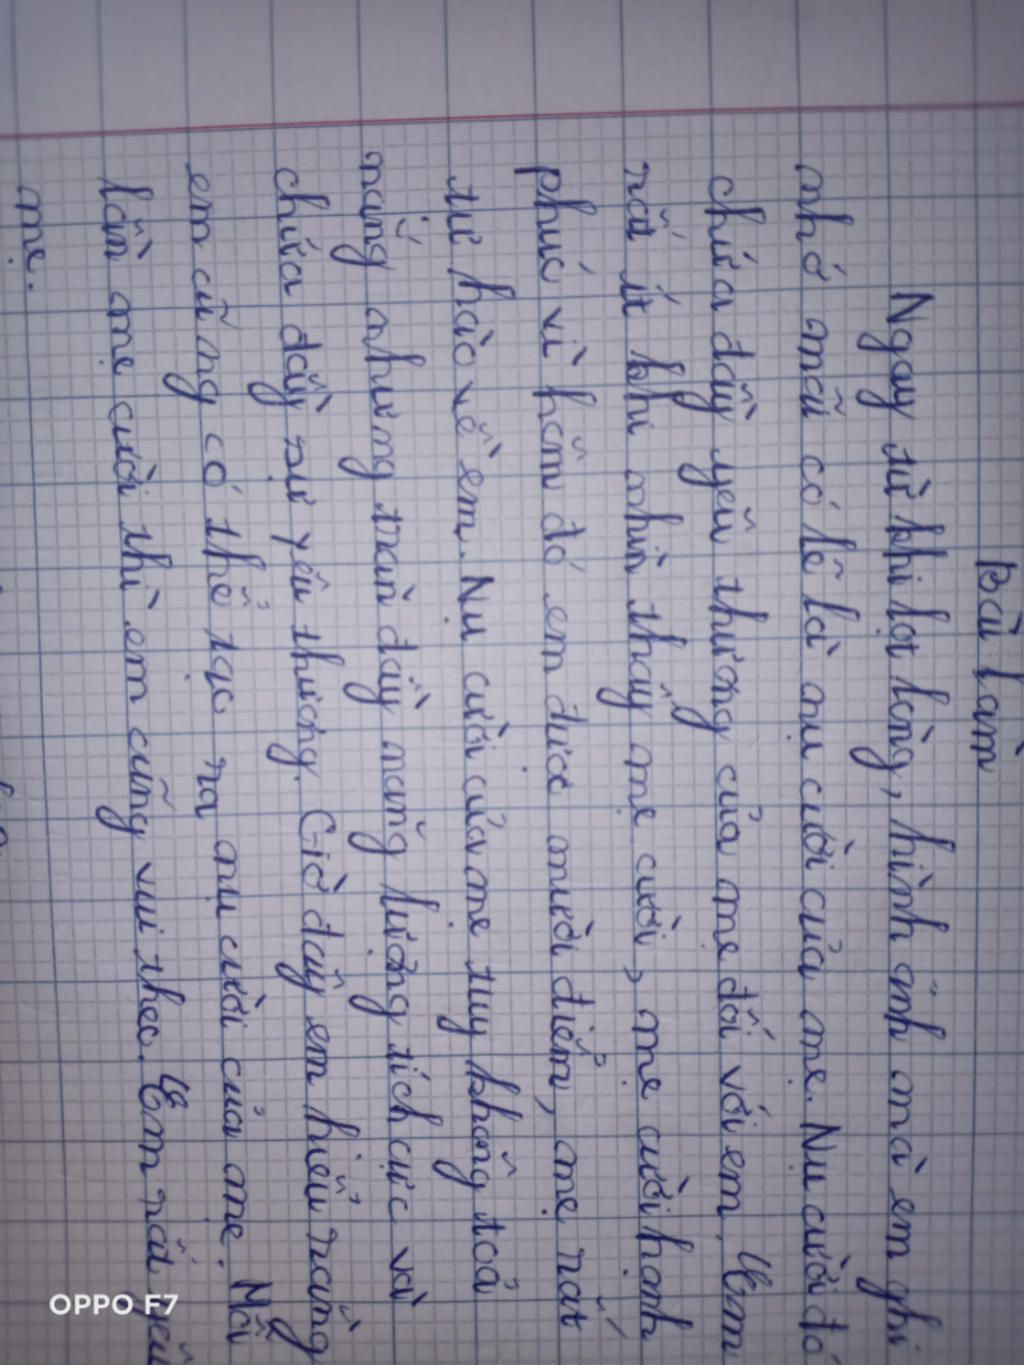 Bài làm
Ngay từ khi lọt lòng, hình ảnh mà em ghi
nhớ mãi có lẽ là nụ cười của mẹ. Nụ cười đó
chứa đầy yêu thương của mẹ đối với em. Em
rất ít khi nhìn thấy mẹ cười, mẹ cười hạnh
phúc vì hôm đó em được mười điểm, mẹ rất
tự hào về em. Nụ cười của mẹ tuy không toả
nắng nhưng tràn đầy năng lượng tích cực và
chứa đầy sự yêu thương. Giờ đây em hiểu rằng
em cũng có thể tạo ra nụ cười của mẹ. Mỗi
lần mẹ cười thì em cũng vui theo. Em rất yêu
mẹ.
OPPO F7